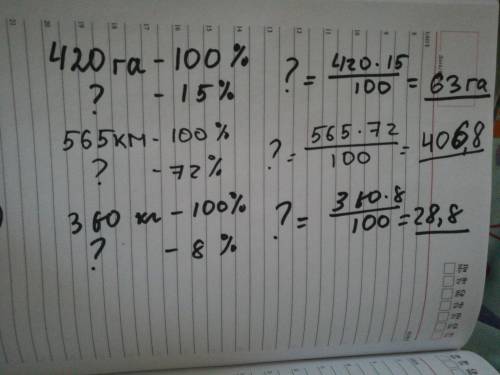 420 га - 100% ? = 420·15/100 = 63 га
? - 15%
565 км - 100% ? = 565·72/100 = 406,8
? - 72%
360 кг - 100% ? = 360·8/100 = 28,8
? - 8%